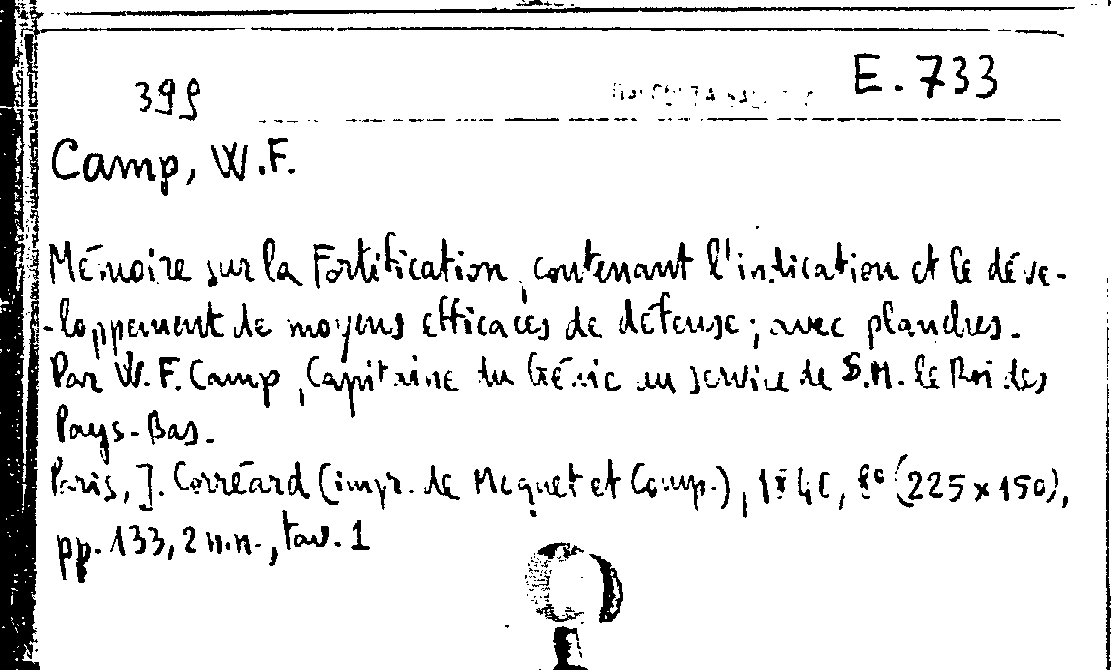 399 E.733
Camp, W.F.
Mémoire sur la Fortification, contenant l'indication et le déve-
-loppement de moyens efficaces de défense; avec planches.
Par W.F. Camp, Capitaine du Génie au service de S.M. le Roi des
Pays-Bas.
Paris, J. Corréard (impr. de Moquet et Comp.), 1840, 8º (225x150),
pp. 133, 2 n.n., tav. 1